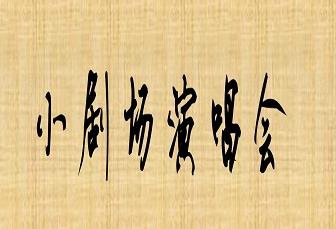 小剧场演唱会